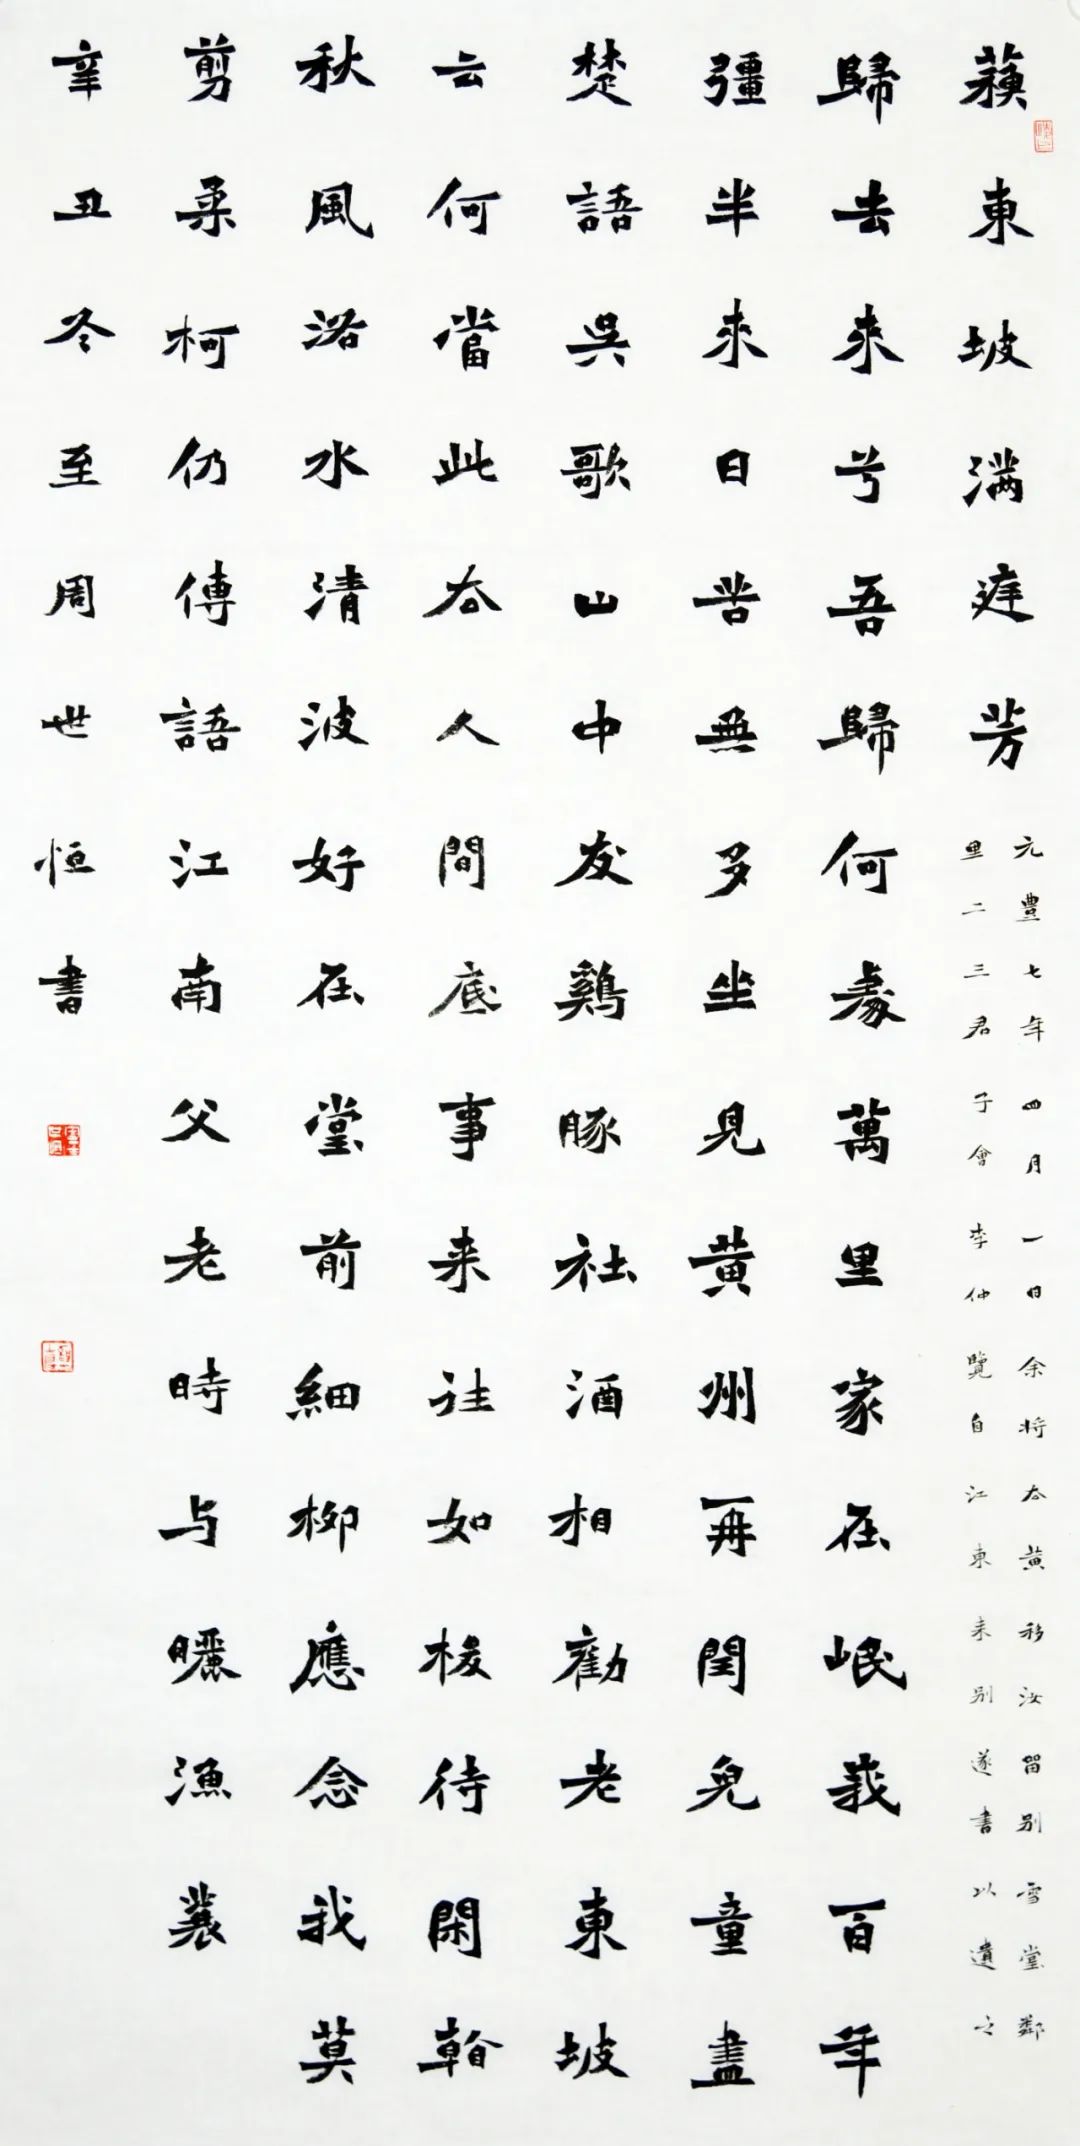 蘇東坡滿庭芳
元豐七年四月一日余将去黄移汝留别雪堂鄰
里二三君子會李仲覽自江東来别遂書以遺之
歸去來兮吾歸何處萬里家在岷峩百年
彊半來日苦無多坐見黄州再閏兒童盡
楚語吳歌山中友鷄豚社酒相勸老東坡
云何當此去人間底事来往如梭待閑看
秋風洛水清波好在堂前細柳應念我莫
剪柔柯仍傳語江南父老時与曬漁蓑
辛丑冬至周世恒書